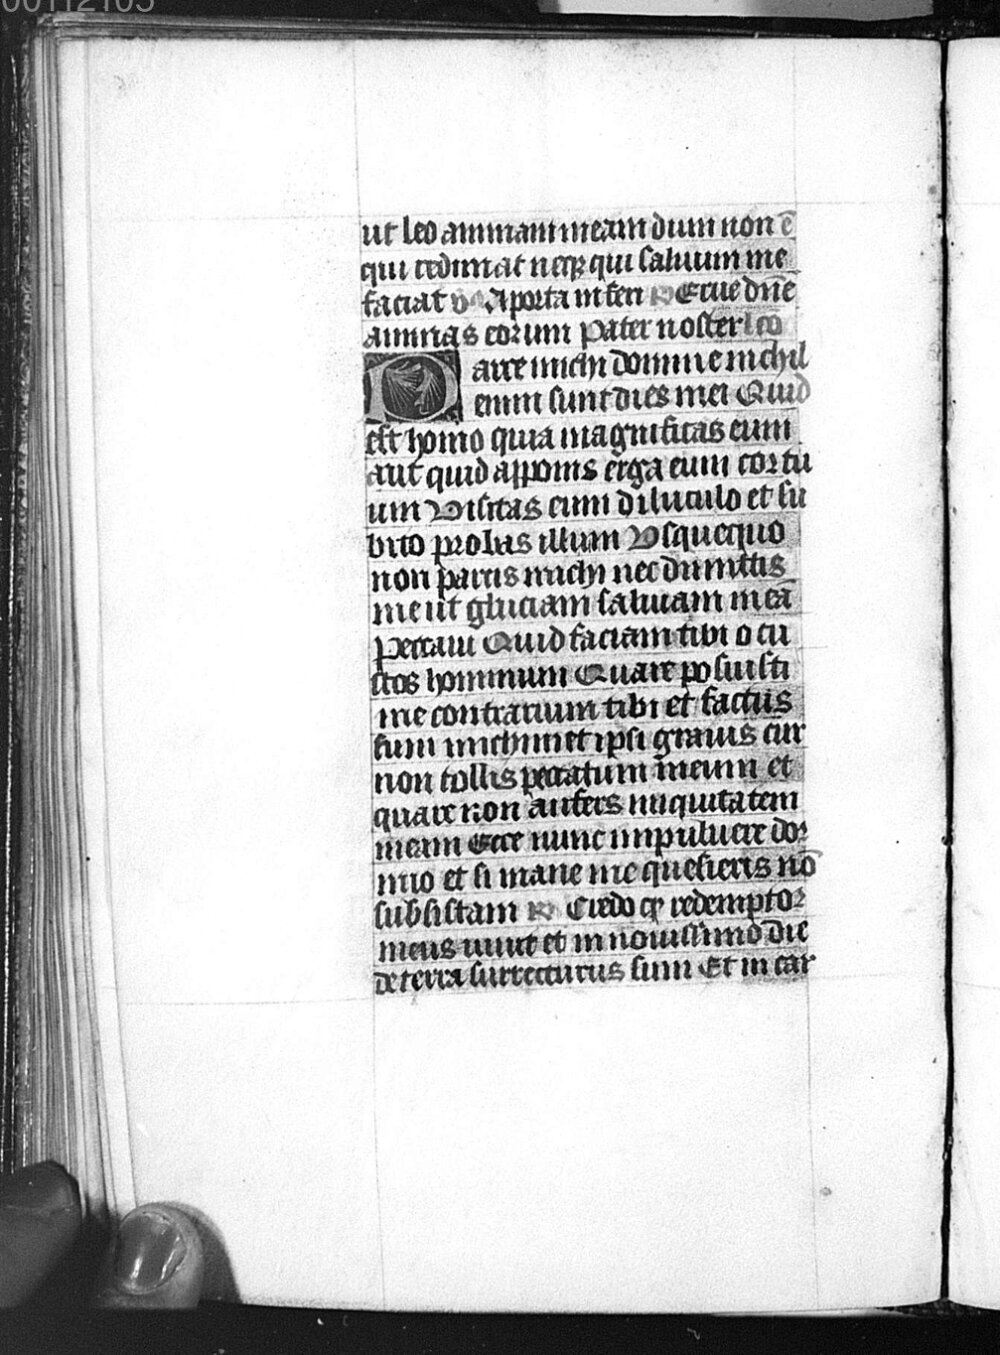 00112105
ut leo animam meam dum non ē
qui redimat neqꝫ qui saluum me
faciat ℣ A porta inferi ℟ Erue dn̄e
animas eorum Pater noster lc̄o
Parce michi domine nichil
enim sunt dies mei Quid
est homo quia magnificas eum
aut quid apponis erga eum cor tu
um Visitas eum diluculo et su
bito probas illum Vsquequo
non parcis michi nec dimittis
me ut gluciam saliuam meā
Peccaui Quid faciam tibi o cu
stos hominum Quare posuisti
me contrarium tibi et factus
sum michimet ipsi grauis cur
non tollis peccatum meum et
quare non aufers iniquitatem
meam Ecce nunc in puluere dor
mio et si mane me quesieris nō
subsistam ℟ Credo qꝫ redemptor
meus uiuit et in nouissimo die
de terra surrecturus sum Et in car